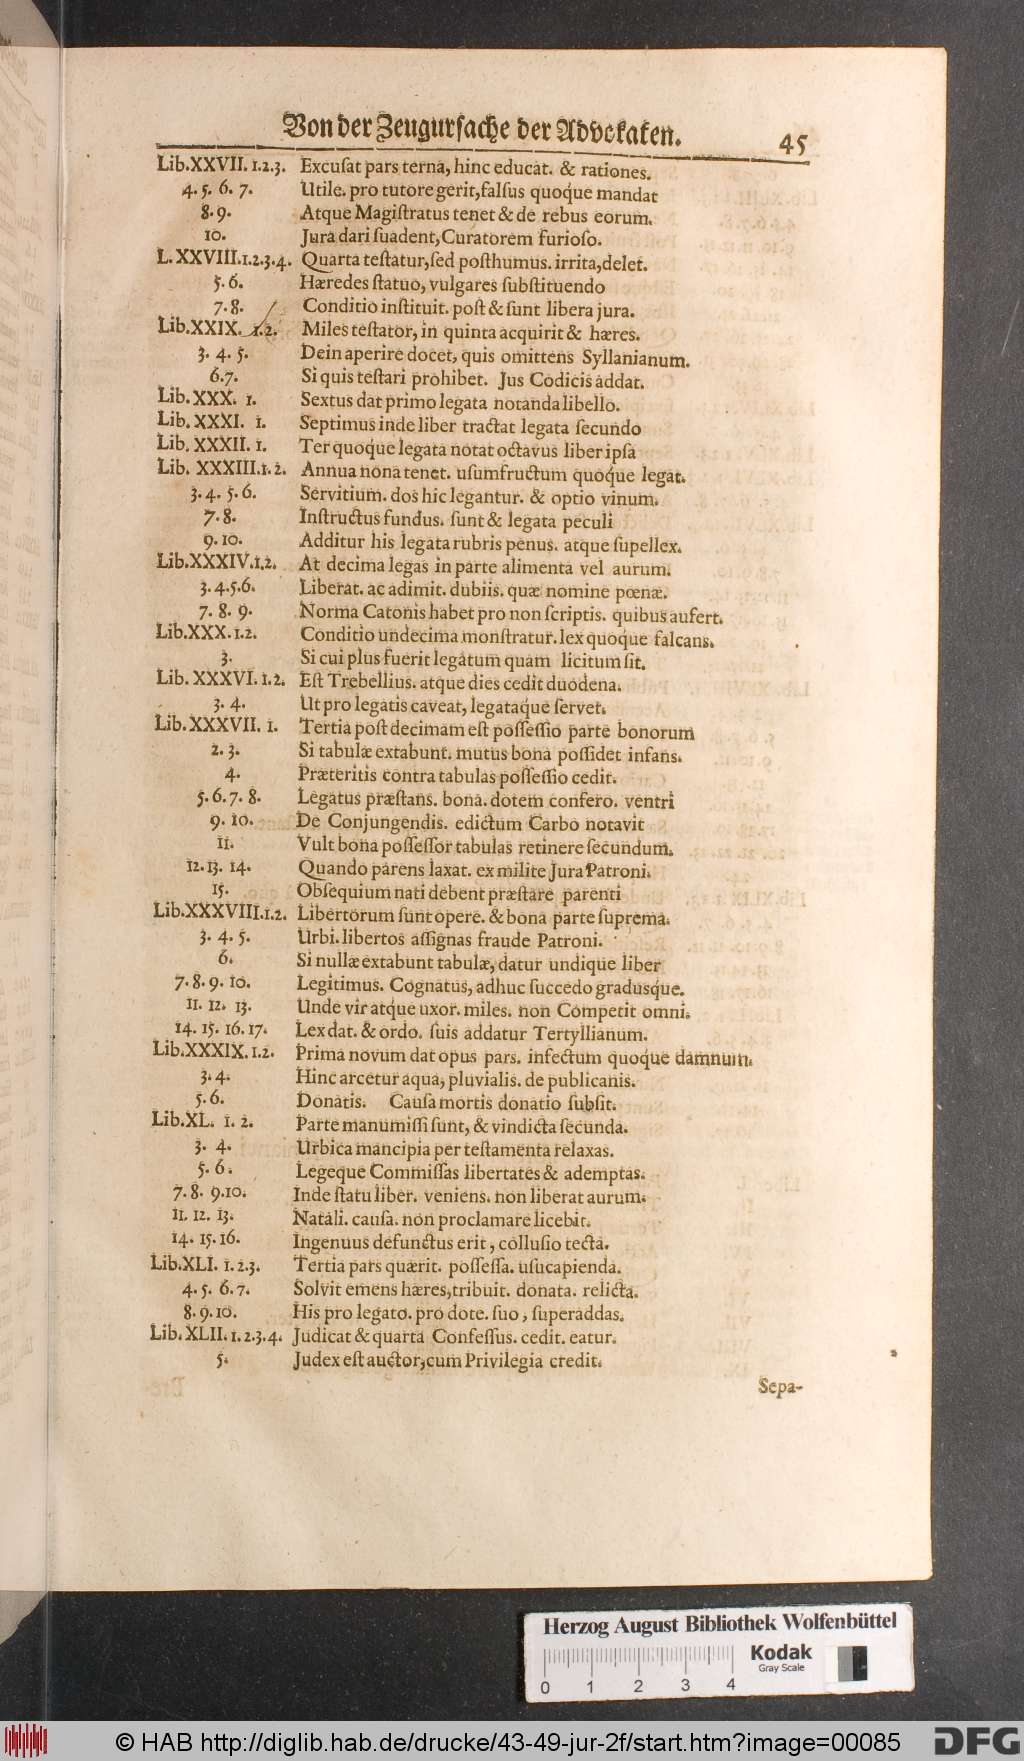 Von der Zeugursache der Advokaten. 45
Lib.XXVII. 1.2.3. Excusat pars terna, hinc educat. & rationes.
4. 5. 6. 7. Utile. pro tutore gerit, falsus quoque mandat
8. 9. Atque Magistratus tenet & de rebus eorum.
10. Jura dari suadent, Curatorem furioso.
L. XXVIII.1.2.3.4. Quarta testatur, sed posthumus. irrita, delet.
5. 6. Hæredes statuo, vulgares substituendo
7. 8. Conditio instituit. post & sunt libera jura.
Lib.XXIX. 1.2. Miles testator, in quinta acquirit & hæres.
3. 4. 5. Dein aperire docet, quis omittens Syllanianum.
6. 7. Si quis testari prohibet. Jus Codicis addat.
Lib.XXX. 1. Sextus dat primo legata notanda libello.
Lib.XXXI. 1. Septimus inde liber tractat legata secundo
Lib.XXXII. 1. Ter quoque legata notat octavus liber ipsa
Lib. XXXIII.1.2. Annua nona tenet. usumfructum quoque legat.
3. 4. 5. 6. Servitium. dos hic legantur. & optio vinum.
7. 8. Instructus fundus. sunt & legata peculi
9. 10. Additur his legata rubris penus. atque supellex.
Lib.XXXIV.1.2. At decima legas in parte alimenta vel aurum.
3. 4. 5. 6. Liberat. ac adimit. dubiis. quæ nomine pœnæ.
7. 8. 9. Norma Catonis habet pro non scriptis. quibus aufert.
Lib.XXX. 1. 2. Conditio undecima monstratur. lex quoque falcans.
3. Si cui plus fuerit legatum quam licitum sit.
Lib. XXXVI. 1.2. Est Trebellius. atque dies cedit duodena.
3. 4. Ut pro legatis caveat, legataque servet.
Lib.XXXVII. 1. Tertia post decimam est possessio parte bonorum
2. 3. Si tabulæ extabunt. mutus bona possidet infans.
4. Præteritis contra tabulas possessio cedit.
5. 6. 7. 8. Legatus præstans. bona. dotem confero. ventri
9. 10. De Conjungendis. edictum Carbo notavit
11. Vult bona possessor tabulas retinere secundum.
12. 13. 14. Quando parens laxat. ex milite Jura Patroni.
15. Obsequium nati debent præstare parenti
Lib.XXXVIII.1.2. Libertorum sunt operè. & bona parte suprema.
3. 4. 5. Urbi. libertos assignas fraude Patroni.
6. Si nullæ extabunt tabulæ, datur undique liber
7. 8. 9. 10. Legitimus. Cognatus, adhuc succedo gradusque.
11. 12. 13. Unde vir atque uxor. miles. non Competit omni.
14. 15. 16. 17. Lex dat. & ordo. suis addatur Tertyllianum.
Lib.XXXIX. 1. 2. Prima novum dat opus pars. infectum quoque damnum.
3. 4. Hinc arcetur aqua, pluvialis. de publicanis.
5. 6. Donatis. Causa mortis donatio subsit.
Lib.XL. 1. 2. Parte manumissi sunt, & vindicta secunda.
3. 4. Urbica mancipia per testamenta relaxas.
5. 6. Legeque Commissas libertates & ademptas.
7. 8. 9. 10. Inde statu liber. veniens. non liberat aurum.
11. 12. 13. Natali. causa. non proclamare licebit.
14. 15. 16. Ingenuus defunctus erit, collusio tecta.
Lib.XLI. 1. 2. 3. Tertia pars quærit. possessa. usucapienda.
4. 5. 6. 7. Solvit emens hæres, tribuit. donata. relicta.
8. 9. 10. His pro legato. pro dote. suo, superaddas.
Lib.XLII. 1. 2. 3. 4. Judicat & quarta Confessus. cedit. eatur.
5. Judex est auctor, cum Privilegia credit.
Sepa-
Herzog August Bibliothek Wolfenbüttel
Kodak
Gray Scale
0 1 2 3 4
© HAB http://diglib.hab.de/drucke/43-49-jur-2f/start.htm?image=00085
DFG